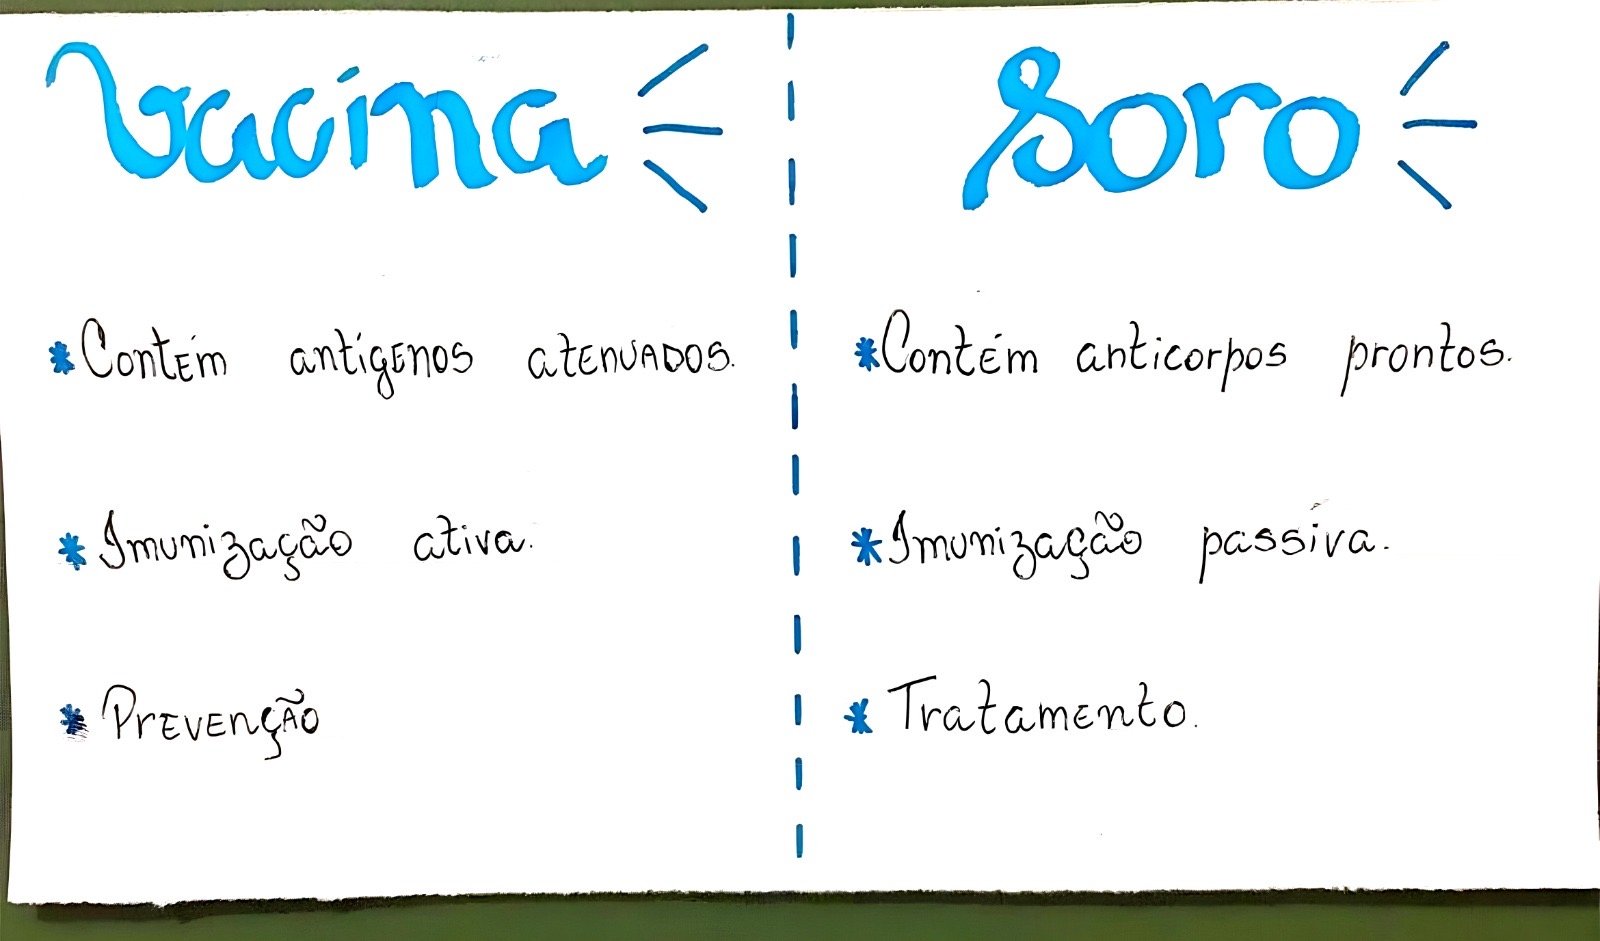 Vacina
* Contém antígenos atenuados.
* Imunização ativa.
* Prevenção
Soro
* Contém anticorpos prontos.
* Imunização passiva.
* Tratamento.